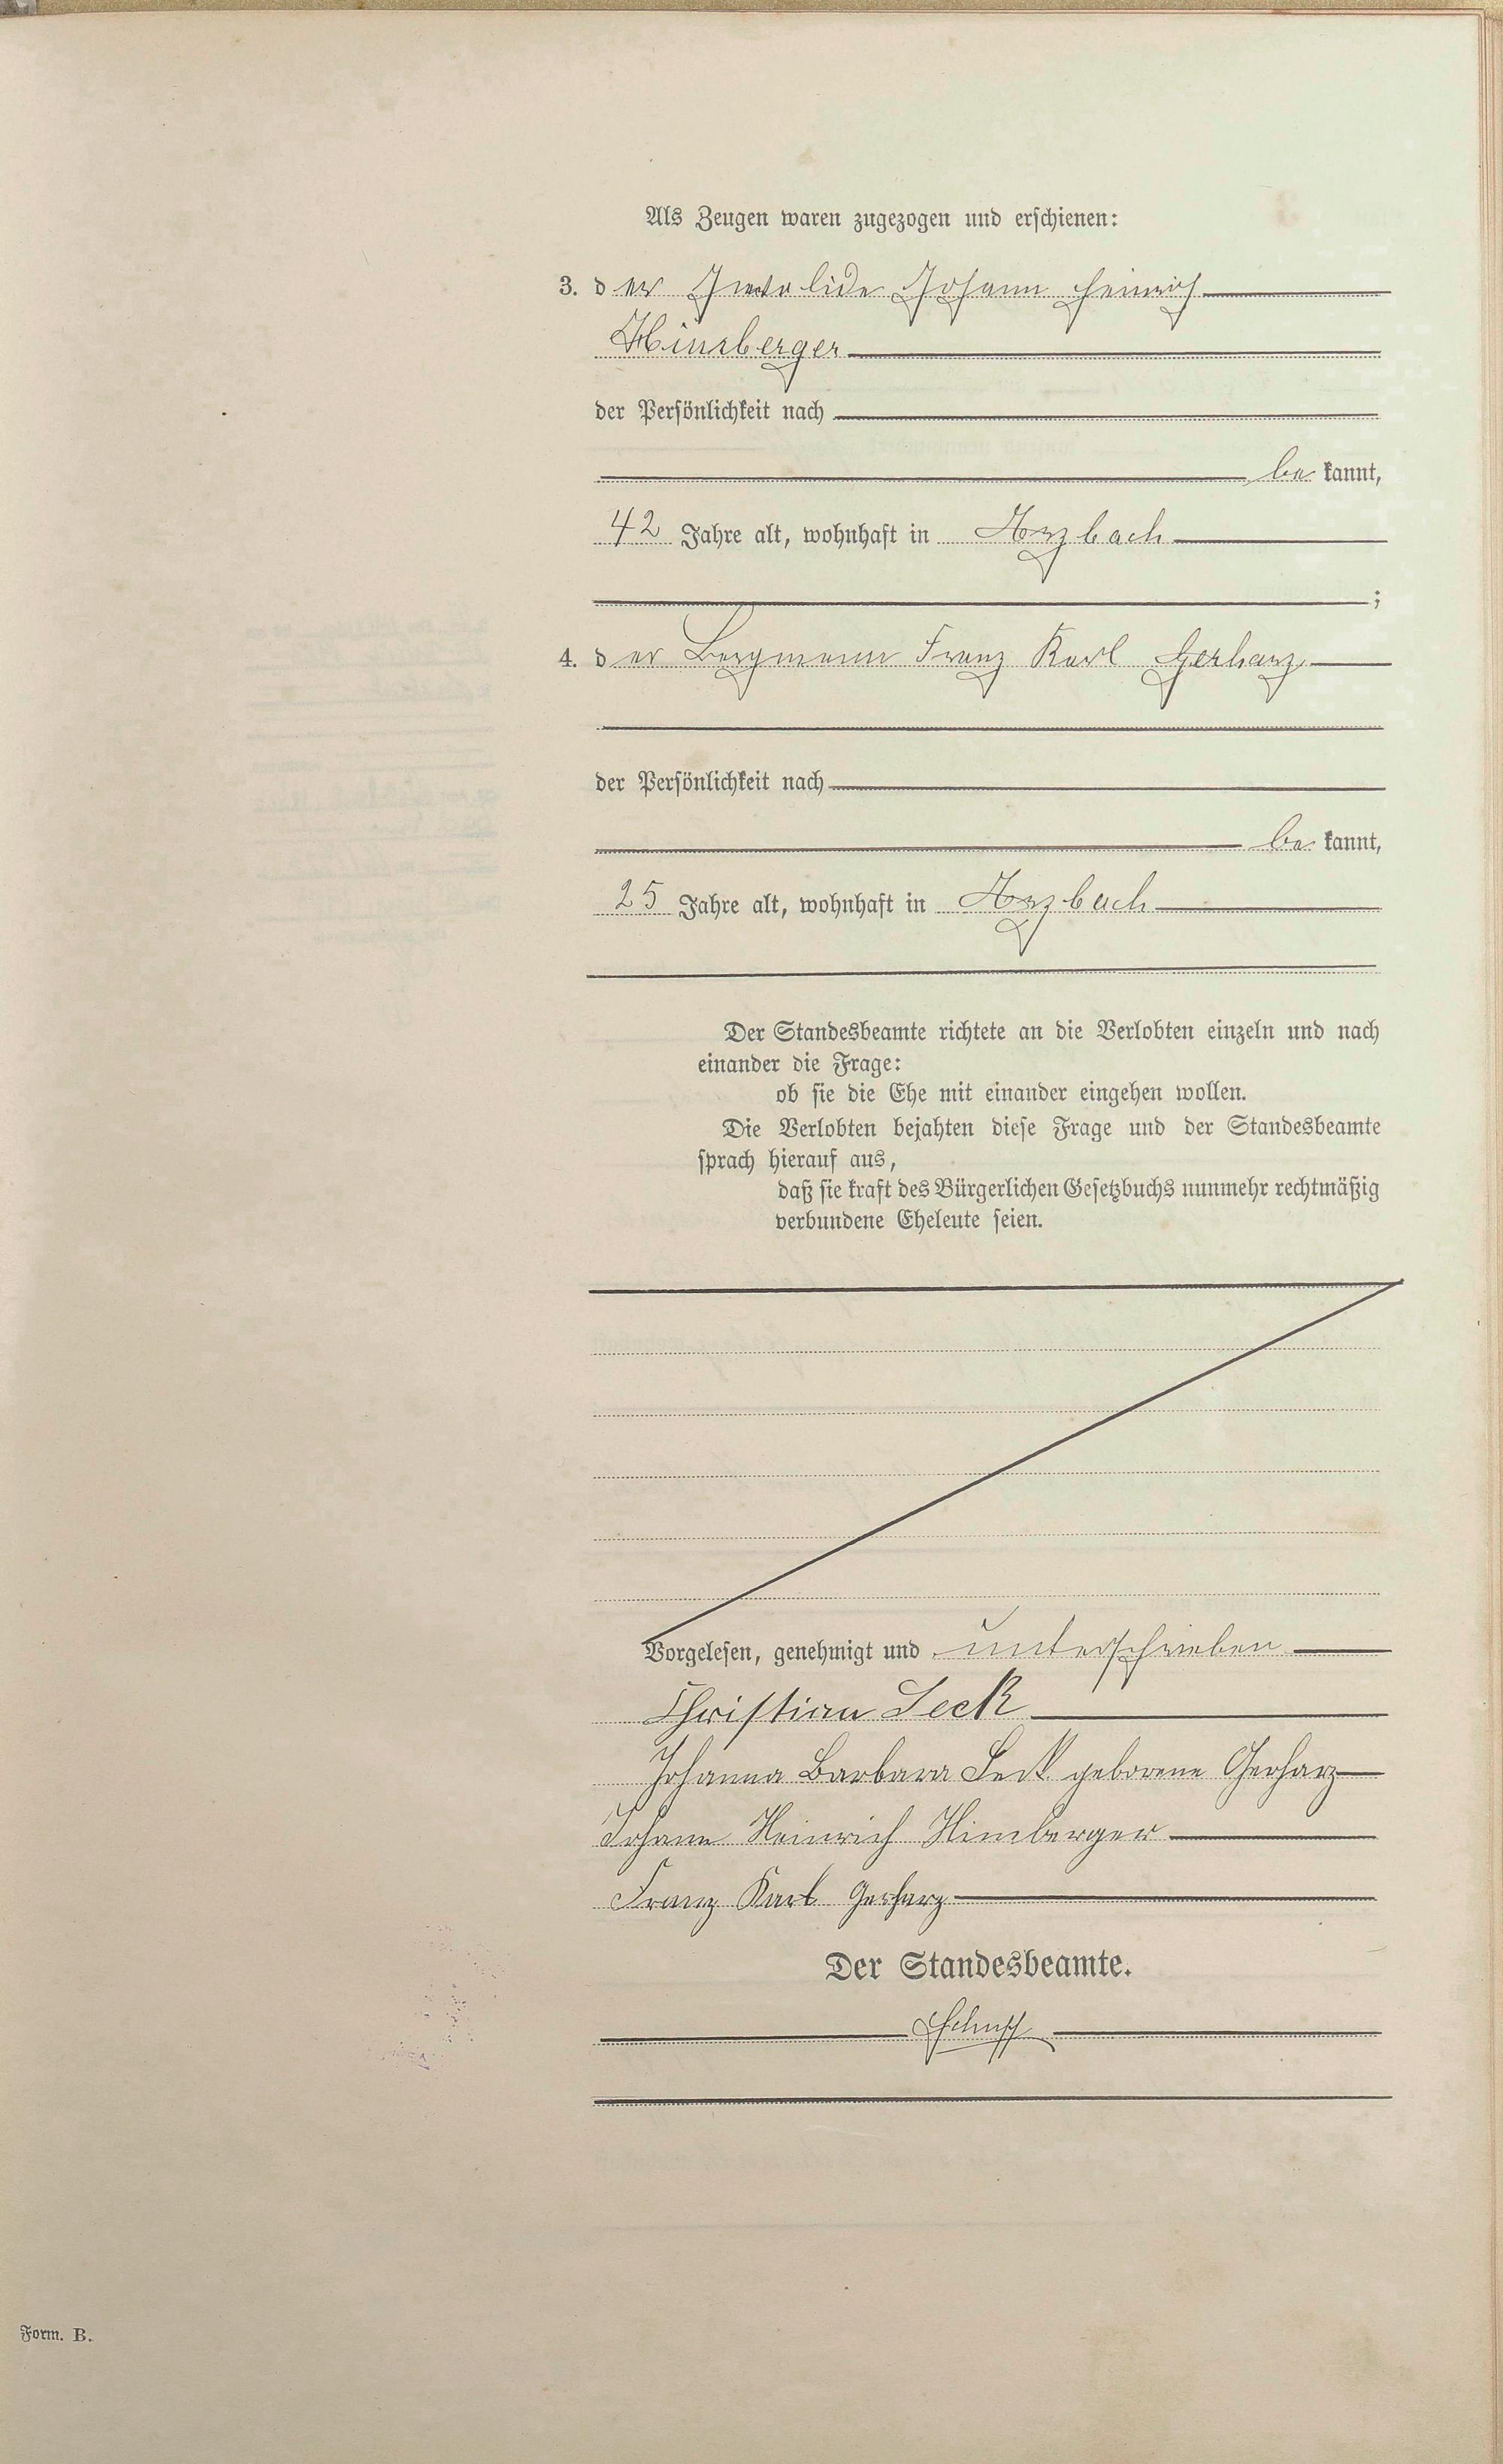 Als Zeugen waren zugezogen und erschienen:
3. der Invalide Johann Heinrich
Himberger
der Persönlichkeit nach
be kannt,
42 Jahre alt, wohnhaft in Arzbach
;
4. der Bergmann Franz Karl Gerharz
der Persönlichkeit nach
be kannt,
25 Jahre alt, wohnhaft in Arzbach
Der Standesbeamte richtete an die Verlobten einzeln und nach
einander die Frage:
ob sie die Ehe mit einander eingehen wollen.
Die Verlobten bejahten diese Frage und der Standesbeamte
sprach hierauf aus,
daß sie kraft des Bürgerlichen Gesetzbuchs nunmehr rechtmäßig
verbundene Eheleute seien.
Vorgelesen, genehmigt und unterschrieben
Christian Leck
Johanna Barbara Leck geborene Gerharz
Johann Heinrich Himberger
Franz Karl Gerharz
Der Standesbeamte.
Form. B.